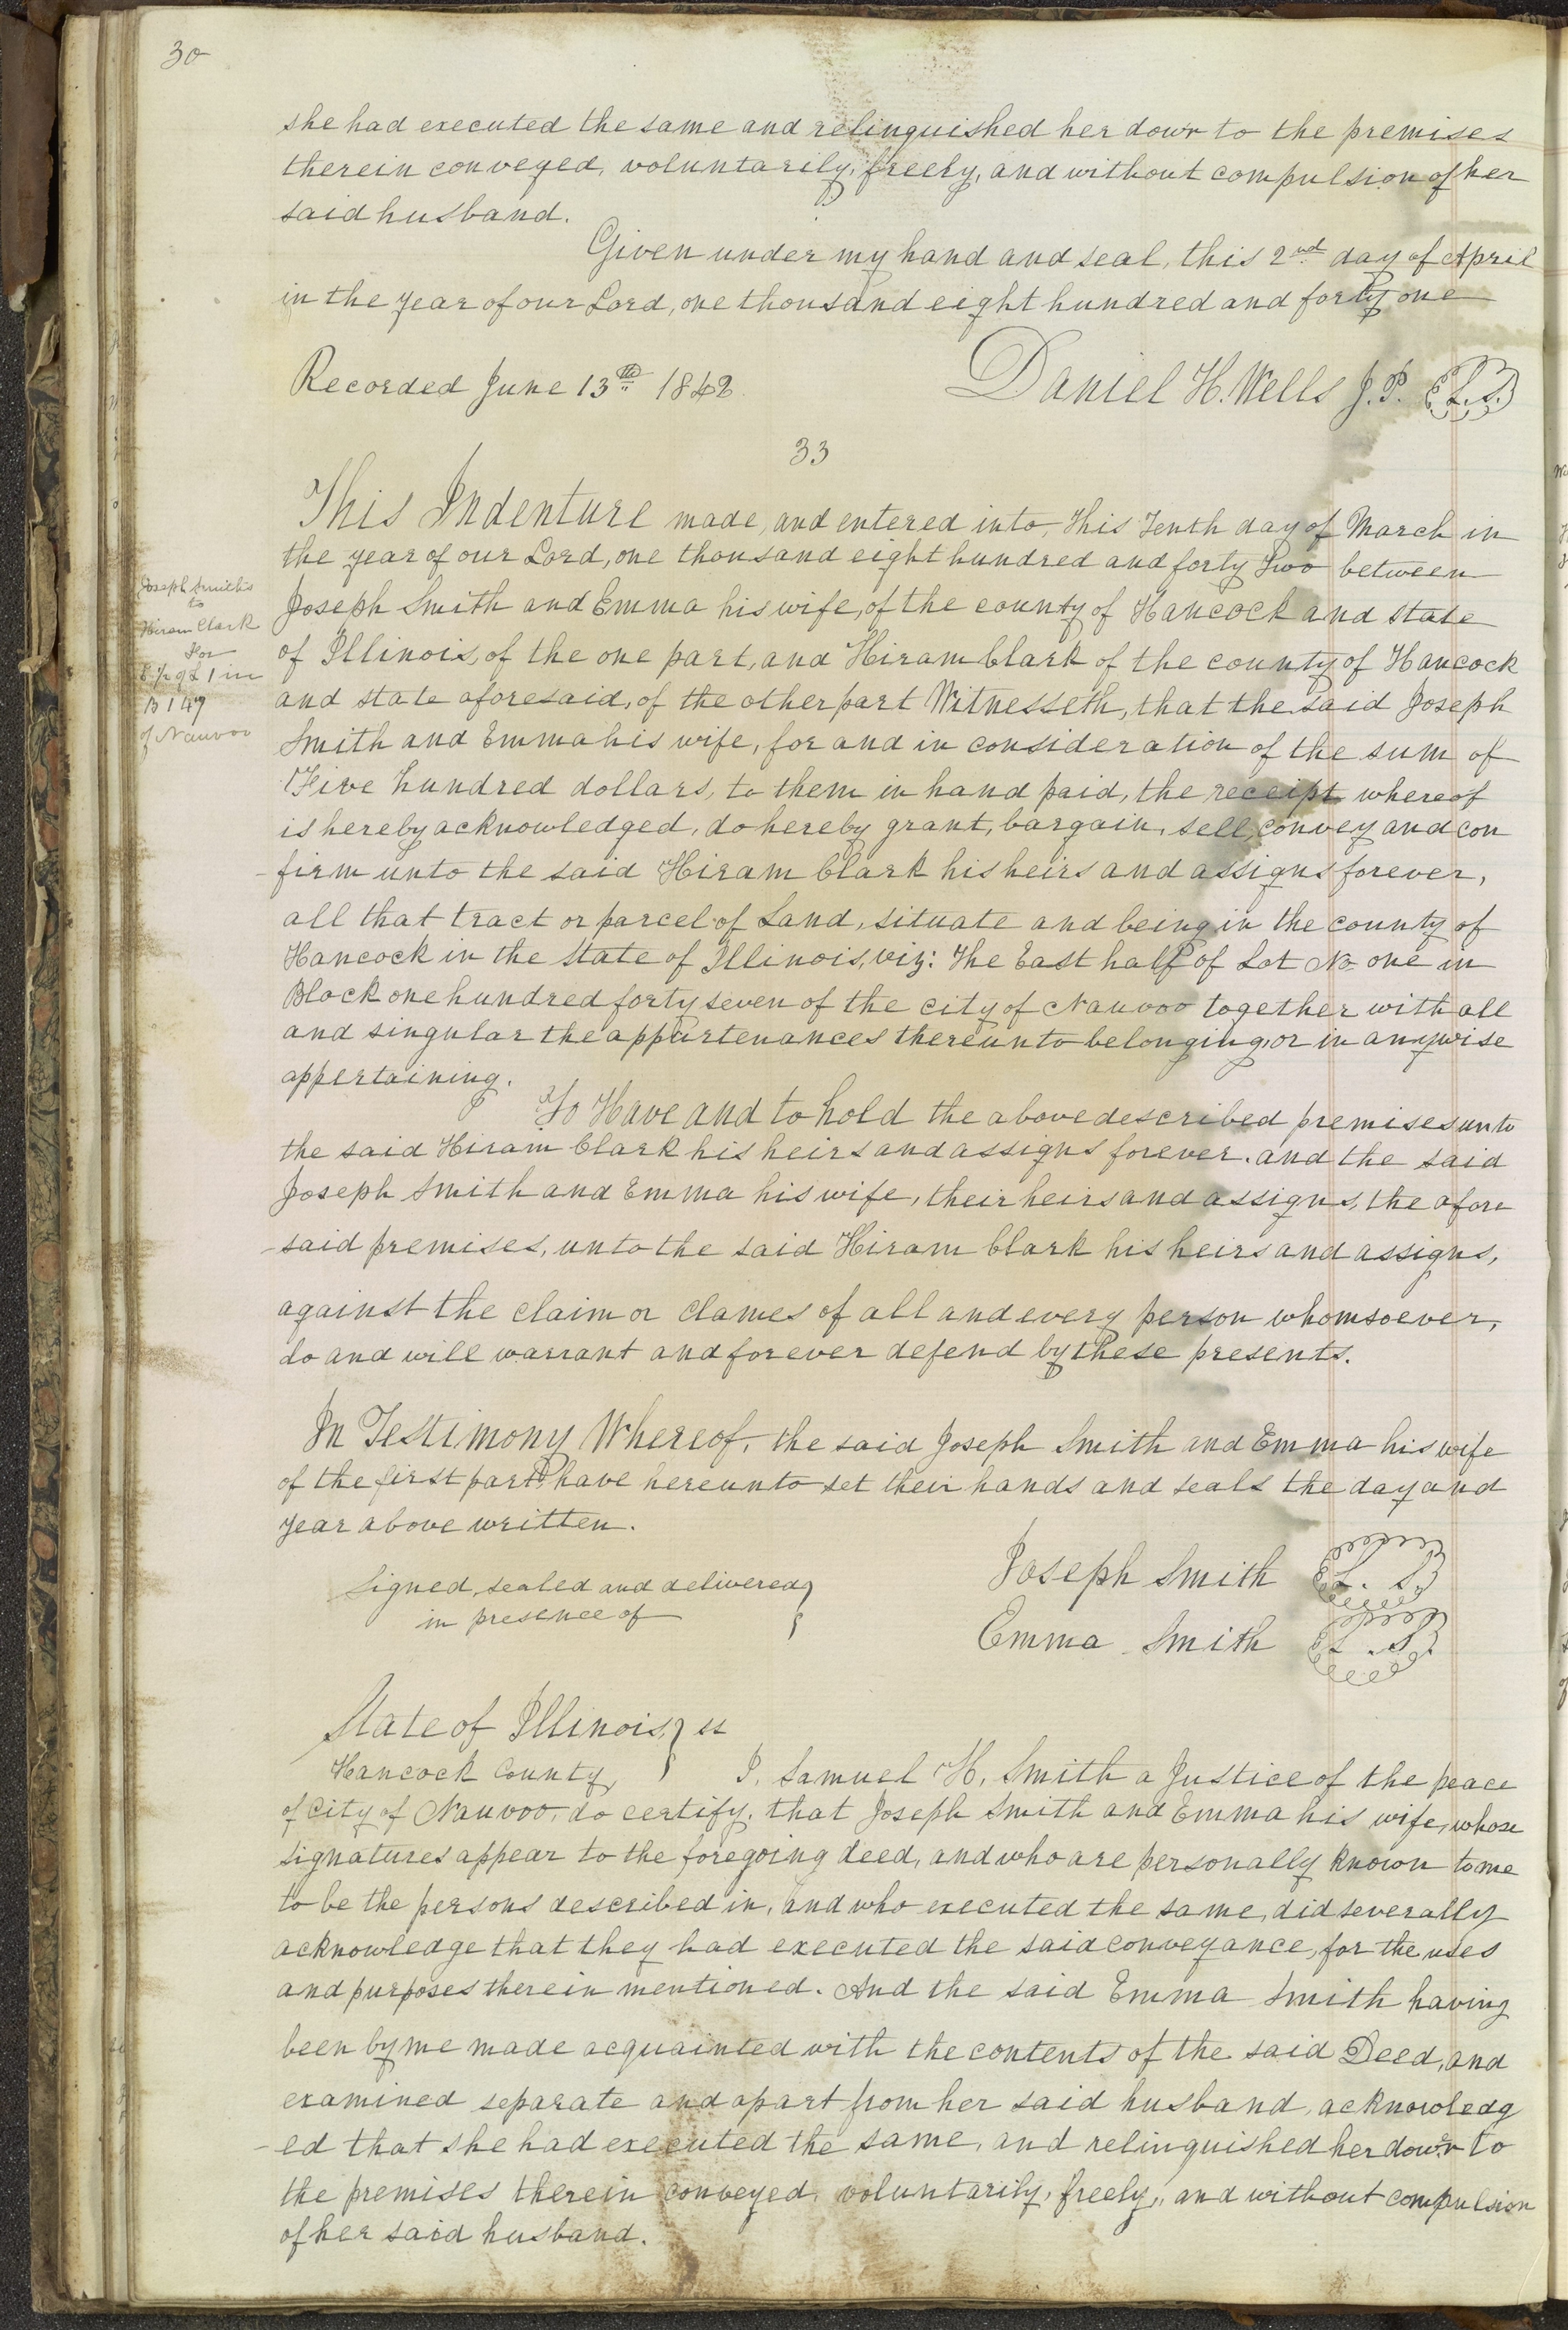 30
she had executed the same and relinquished her dowr to the premises
therein conveyed, voluntarily, freely, and without compulsion of her
said husband.
Given under my hand and seal, this 2nd day of April
in the year of our Lord, one thousand eight hundred and forty one
Recorded June 13th 1842.
Daniel H. Wells J.P. L.S.
33
This Indenture made, and entered into, this Tenth day of March in
the year of our Lord, one thousand eight hundred and forty Two between
Joseph Smith and Emma his wife, of the county of Hancock and state
of Illinois, of the one part, and Hiram Clark of the county of Hancock
and state aforesaid, of the other part Witnesseth, that the said Joseph
Smith and Emma his wife, for and in consideration of the sum of
Five hundred dollars, to them in hand paid, the receipt whereof
is hereby acknowledged, do hereby grant, bargain, sell, convey and con
-firm unto the said Hiram Clark his heirs and assigns forever,
all that tract or parcel of Land, situate and being in the county of
Hancock in the State of Illinois, viz: The East half of Lot No one in
Block one hundred forty seven of the city of Nauvoo together with all
and singular the appurtenances thereunto belonging, or in anywise
appertaining.
To Have and to hold the above described premises unto
the said Hiram Clark his heirs and assigns forever. and the said
Joseph Smith and Emma his wife, their heirs and assigns, the afore
-said premises, unto the said Hiram Clark his heirs and assigns,
against the claim or clames of all and every person whomsoever,
do and will warrant and forever defend by these presents.
In Testimony Whereof, the said Joseph Smith and Emma his wife
of the first part, have hereunto set their hands and seals the day and
year above written.
Signed, sealed and delivered }
in presence of
Joseph Smith L. S.
Emma Smith L. S.
State of Illinois, } ss
Hancock County,
I, Samuel H. Smith a Justice of the peace
of City of Nauvoo, do certify, that Joseph Smith and Emma his wife, whose
signatures appear to the foregoing deed, and who are personally known to me
to be the persons described in, and who executed the same, did severally
acknowledge that they had executed the said conveyance, for the uses
and purposes therein mentioned. And the said Emma Smith having
been by me made acquainted with the contents of the said Deed, and
examined separate and apart from her said husband, acknowledg
-ed that she had executed the same, and relinquished her dowr to
the premises therein conveyed, voluntarily, freely, and without compulsion
of her said husband.
Joseph Smith
to
Hiram Clark
For
E 1/2 of L 1 in
B 147
of Nauvoo